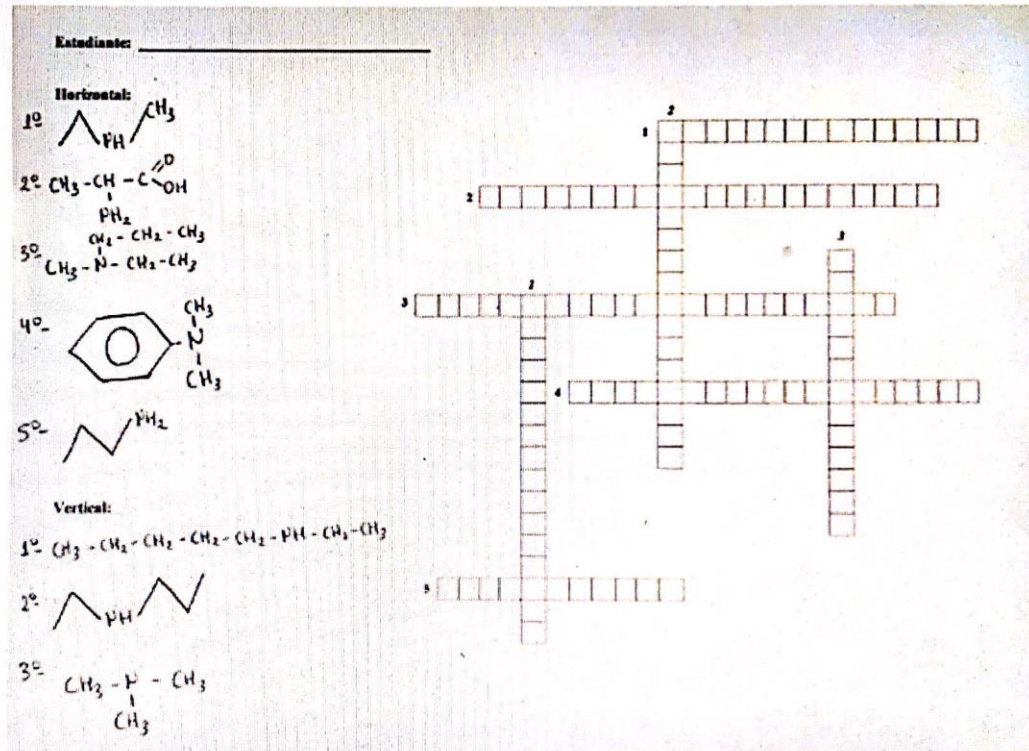 Estudiante:
Horizontal:
1º
NH
CH3
2º- CH3 - CH - C
O
OH
NH2
3º-
CH2 - CH2 - CH3
CH3 - N - CH2 - CH3
4º-
CH3
N
CH3
5º-
NH2
Vertical:
1º- CH3 - CH2 - CH2 - CH2 - CH2 - NH - CH2 - CH3
2º-
NH
3º-
CH3 - N - CH3
CH3
2
1
2
3
1
3
4
5